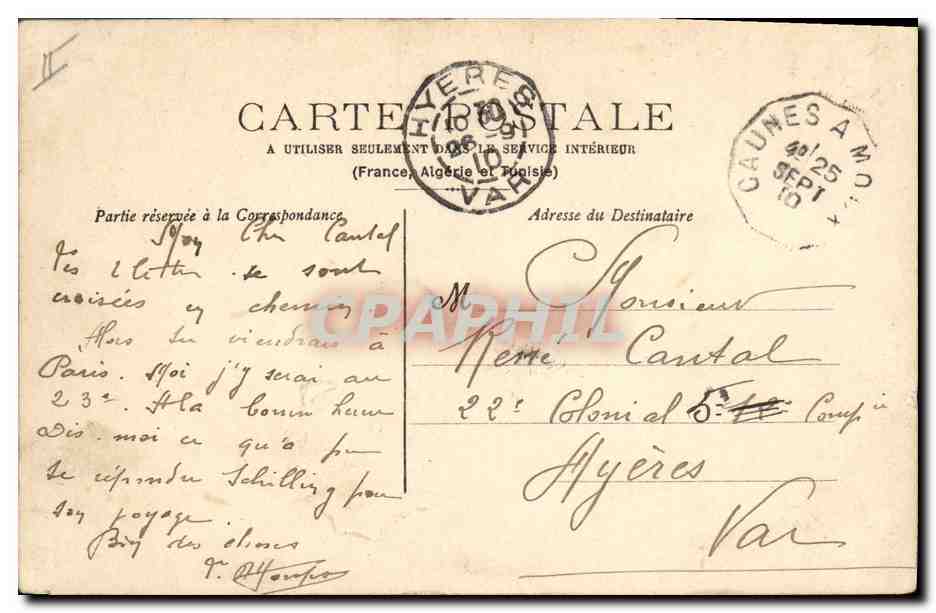 II
CARTE POSTALE
A UTILISER SEULEMENT DANS LE SERVICE INTÉRIEUR
(France, Algérie et Tunisie)
HYERES
10 30
26 - 9
10
VAR
CAUNES A MO
25
SEPT
10
Partie réservée à la Correspondance
Mon Cher Cantal
Tes 2 lettres se sont
croisées en chemin.
Alors tu viendrais à
Paris. Moi j'y serai au
23e. A la bonne heure
Dis-moi ce qu'a pu
te répondre Schilling pour
son voyage.
Bien des choses
Adresse du Destinataire
M Monsieur
René Cantal
22e Colonial 5e Compie
Hyères
Var
CPAPHIL